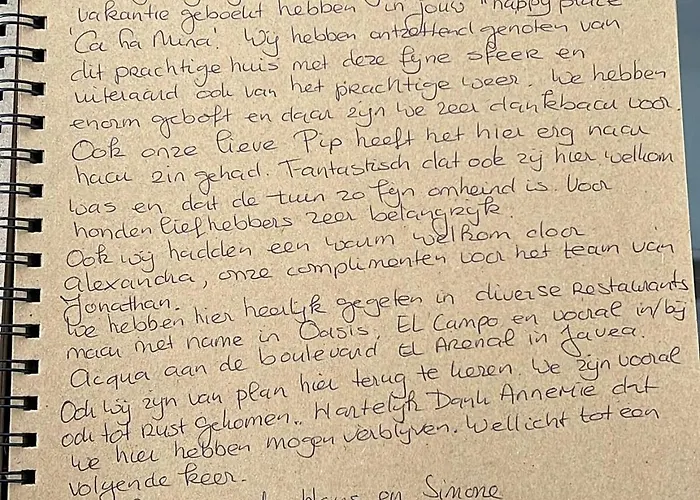 vakantie geboekt hebben in jouw "happy place"
'Ca Na Nina'. Wij hebben ontzettend genoten van
dit prachtige huis met deze fijne sfeer en
uiteraard ook van het prachtige weer. We hebben
enorm geboft en daar zijn we zeer dankbaar voor.
Ook onze lieve Pip heeft het hier erg naar
haar zin gehad. Fantastisch dat ook zij hier welkom
was en dat de tuin zo fijn omheind is. Voor
honden liefhebbers zeer belangrijk.
Ook wij hadden een warm welkom door
Alexandra, onze complimenten voor het team van
Jonathan.
We hebben hier heerlijk gegeten in diverse Restaurants
maar met name in Oasis, El Campo en vooral in/bij
Acqua aan de boulevard El Arenal in Javea.
Ook wij zijn van plan hier terug te keren. We zijn vooral
ook tot rust gekomen.. Hartelijk Dank Annemie dat
we hier hebben mogen verblijven. Wellicht tot een
volgende keer.
en Simone